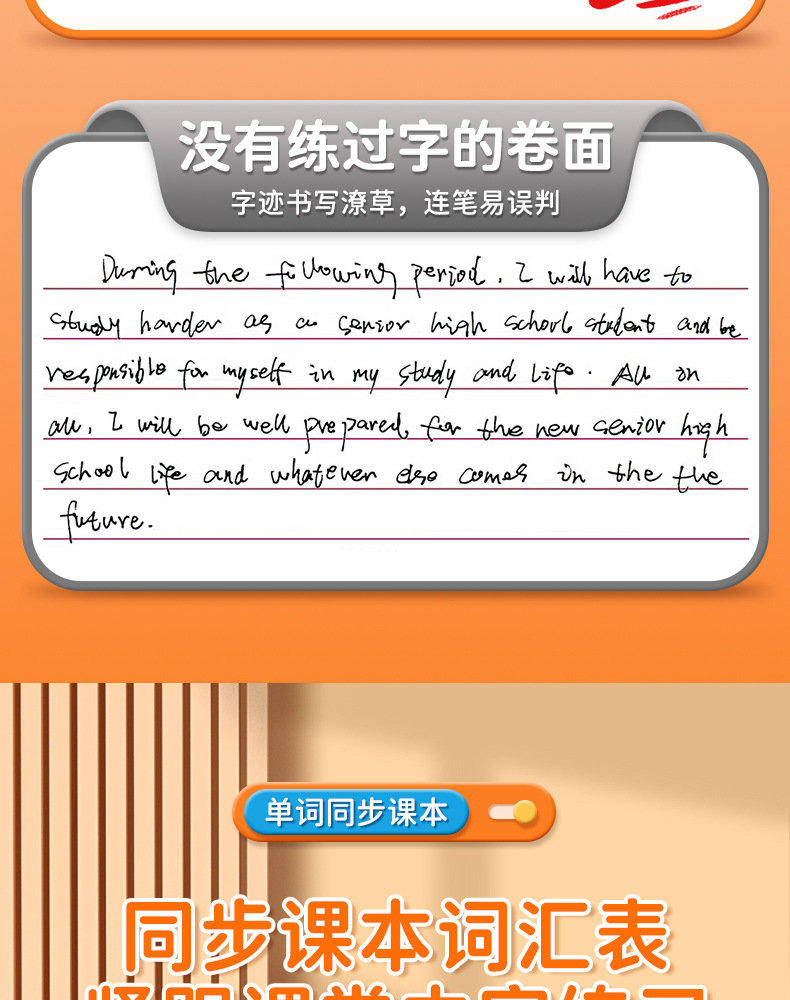 没有练过字的卷面
字迹书写潦草，连笔易误判
During the following period, I will have to
study harder as a senior high school student and be
responsible for myself in my study and life. All in
all, I will be well prepared for the new senior high
school life and whatever else comes in the the
future.
单词同步课本
同步课本词汇表